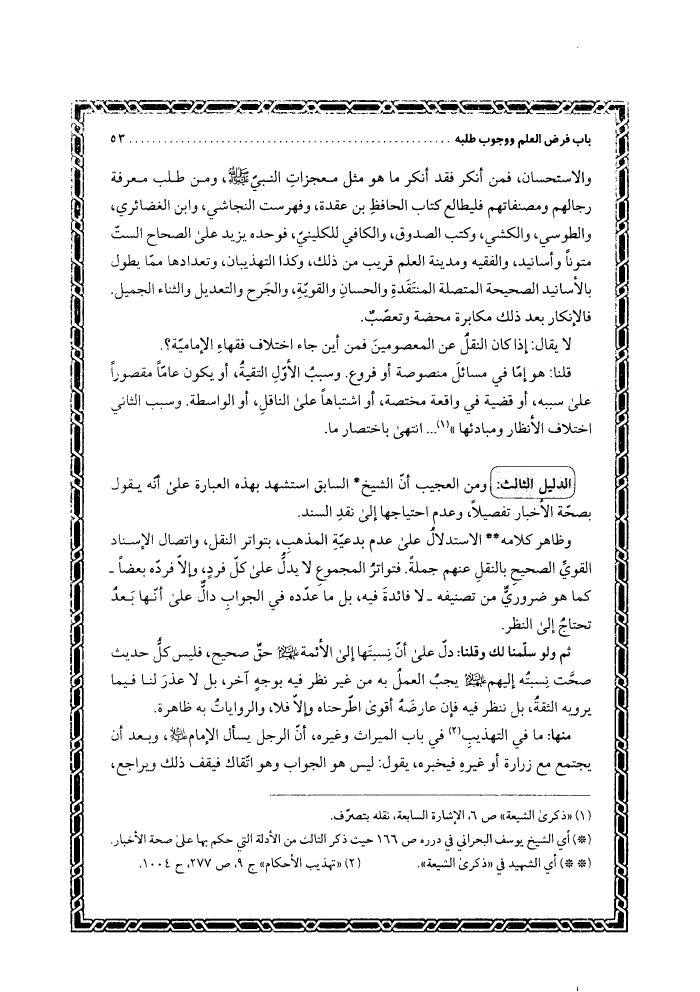 باب فرض العلم ووجوب طلبه ........................................................ ٥٣
والاستحسان، فمن أنكر فقد أنكر ما هو مثل معجزاتِ النبيّ ﷺ، ومن طلب معرفة
رجالهم ومصنفاتهم فليطالع كتاب الحافظِ بن عقدة، وفهرست النجاشي، وابن الغضائري،
والطوسي، والكشي، وكتب الصدوق، والكافي للكلينيّ، فوحده يزيد علىٰ الصحاح الستّ
متوناً وأسانيد، والفقيه ومدينة العلم قريب من ذلك، وكذا التهذيبان، وتعدادها ممّا يطول
بالأسانيد الصحيحة المتصلة المنتَقَدةِ والحسانِ والقويّةِ، والجَرح والتعديل والثناء الجميل.
فالإنكار بعد ذلك مكابرة محضة وتعصّبٌ.
لا يقال: إذا كان النقلُ عن المعصومينَ فمن أين جاء اختلاف فقهاءِ الإماميّة؟.
قلنا: هو إمّا في مسائلَ منصوصة أو فروع. وسببُ الأوّلِ التقيةُ، أو يكون عامّاً مقصوراً
علىٰ سببه، أو قضية في واقعة مختصة، أو اشتباهاً علىٰ الناقلِ، أو الواسطة. وسبب الثاني
اختلاف الأنظار ومبادئها »(١)... انتهىٰ باختصار ما.
الدليل الثالث: ومن العجيب أنّ الشيخ* السابق استشهد بهذه العبارة علىٰ أنّه يقول
بصحّة الأخبار تفصيلاً، وعدم احتياجها إلىٰ نقدِ السند.
وظاهر كلامه** الاستدلالُ علىٰ عدم بدعيّةِ المذهبِ، بتواتر النقل، واتصال الإسناد
القويِّ الصحيح بالنقلِ عنهم جملةً. فتواترُ المجموعِ لا يدلُّ علىٰ كلّ فردٍ، وإلاّ فردّه بعضاً ـ
كما هو ضروريٌّ من تصنيفه ـ لا فائدةَ فيه، بل ما عدّده في الجوابِ دالٌّ علىٰ أنّها بَعدُ
تحتاجُ إلىٰ النظر.
ثم ولو سلّمنا لك وقلنا: دلّ علىٰ أنّ نِسبتَها إلىٰ الأئمة ﵈ حقٌ صحيح، فليس كلُّ حديث
صحَّت نِسبتُه إليهم ﵈ يجبُ العملُ به من غير نظر فيه بوجهٍ آخر، بل لا عذرَ لنا فيما
يرويه الثقةُ، بل ننظر فيه فإن عارضَهُ أقوىٰ اطّرحناه وإلاّ فلا، والرواياتُ به ظاهرة.
منها: ما في التهذيبِ(٢) في باب الميراث وغيره، أنّ الرجل يسأل الإمام ﵇، وبعد أن
يجتمع مع زرارة أو غيرِهِ فيخبره، يقول: ليس هو الجواب وهو اتّقاك فيقف ذلك ويراجع،
(١) «ذكرىٰ الشيعة» ص ٦، الإشارة السابعة، نقله بتصرّف.
(*) أي الشيخ يوسف البحراني في درره ص ١٦٦ حيث ذكر الثالث من الأدلة التي حكم بها علىٰ صحة الأخبار.
(* *) أي الشهيد في «ذكرىٰ الشيعة». (٢) «تهذيب الأحكام» ج ٩، ص ٢٧٧، ح ١٠٠٤.